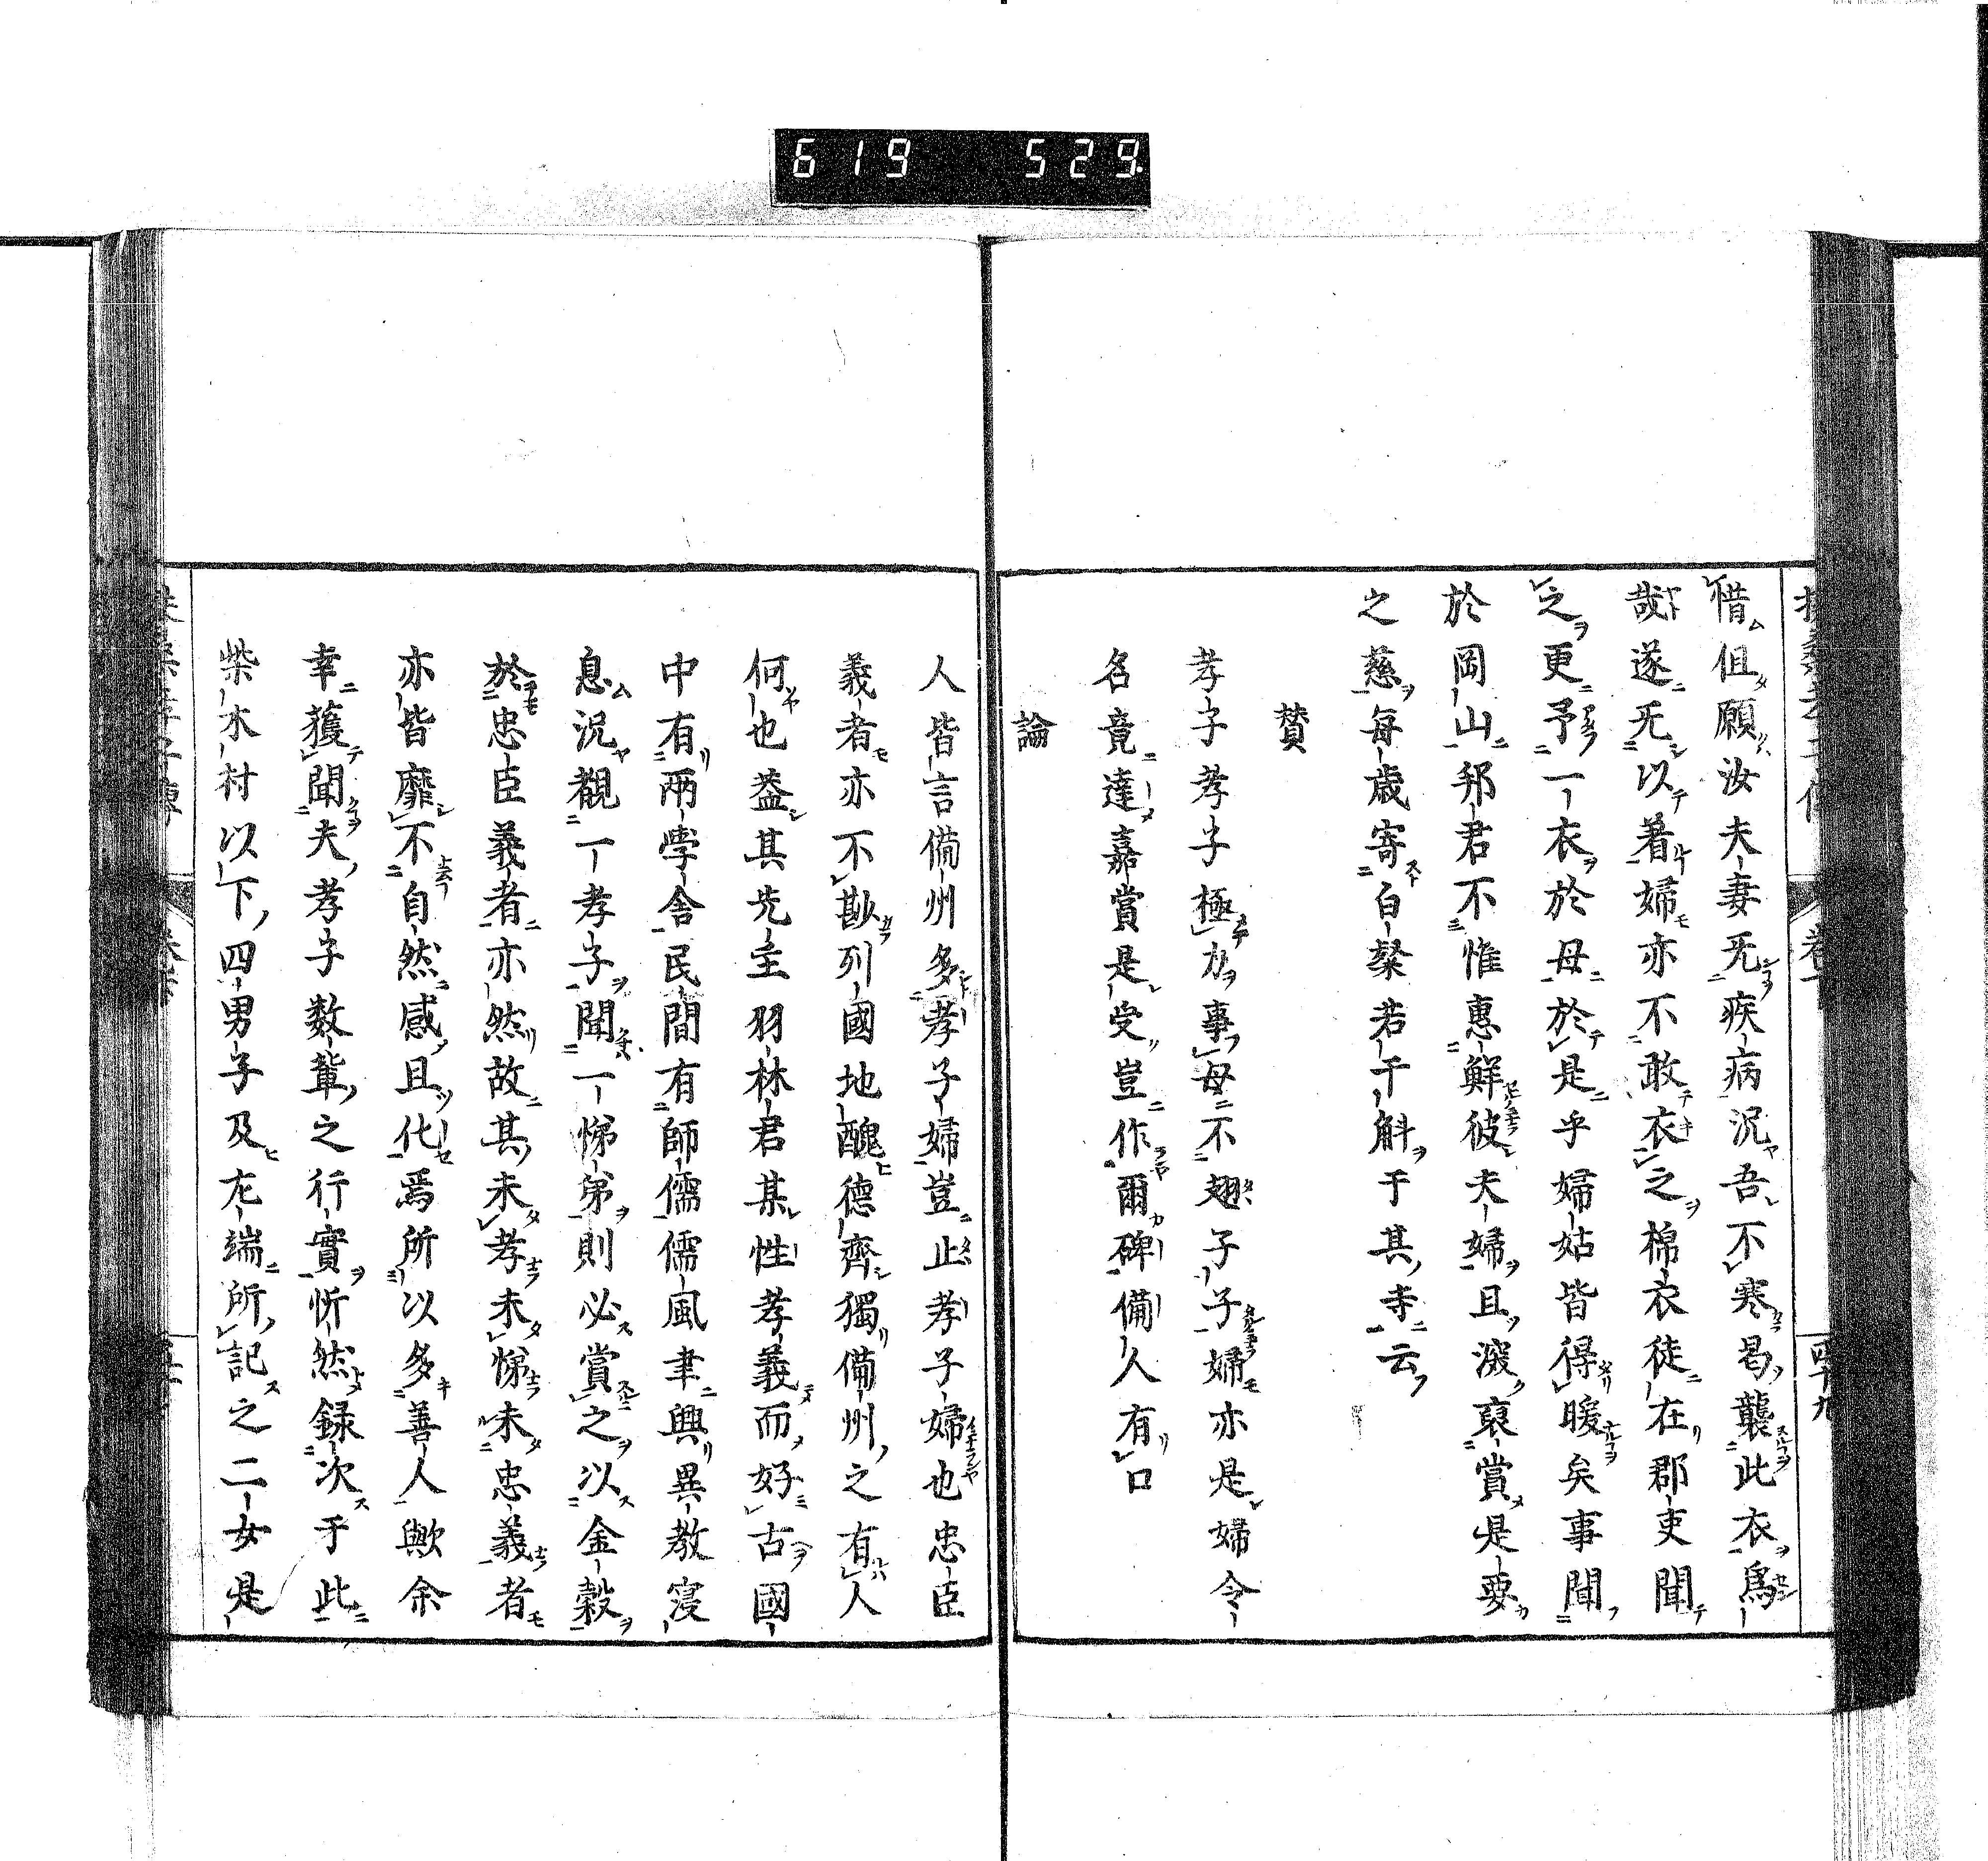 619 529
惜但願汝夫妻旡疾病況吾不寒曷襲此衣爲
哉遂旡以着婦亦不敢衣之棉衣徒在郡吏聞
之更予一衣於母於是乎婦姑皆得暖矣事聞
於岡山邦君不惟惠鮮彼夫婦且深裒賞是要
之慈每歳寄白粲若干斛于其寺云
賛
孝子孝子極力事母不翅子子婦亦是婦令
名竟達嘉賞是受豈作爾碑備人有口
論
人皆言備州多孝子婦豈止孝子婦也忠臣
義者亦不尠列國地醜德齊獨備州之有人
何也蓋其先主羽林君某性孝義而好古國
中有兩學舍民間有師儒儒風聿興異教寖
息況覩一孝子聞一悌弟則必賞之以金穀
於忠臣義者亦然故其未孝未悌未忠義者
亦皆靡不自然感且化焉所以多善人歟余
幸獲聞夫孝子數輩之行實忻然録次于此
柴木村以下四男子及左端所記之二女是